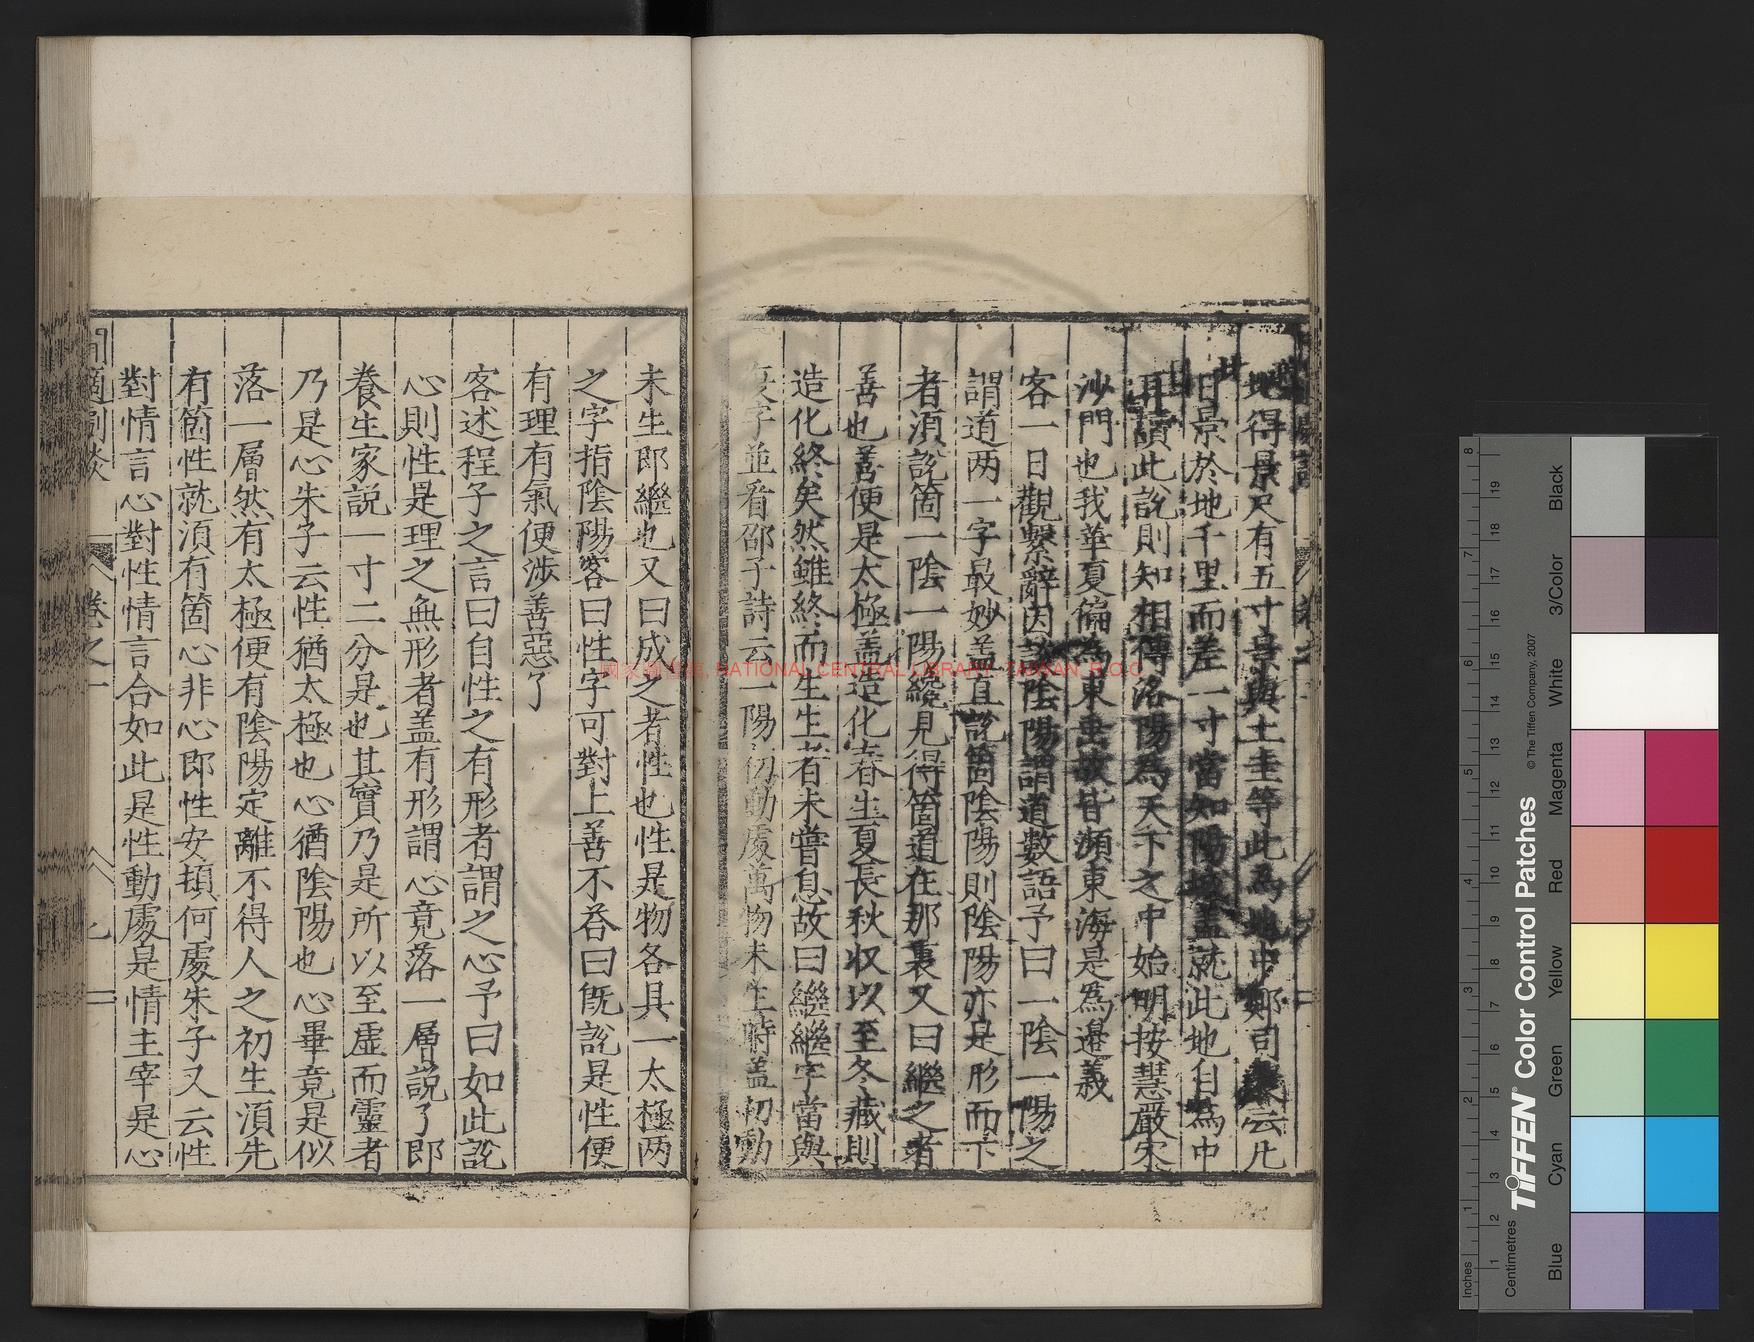 地得景尺有五寸景與土圭等此為地中鄭司農云凡
日景於地千里而差一寸當如陽城蓋就此地自為中
耳讀此說則知相傳洛陽為天下之中始明按慧嚴宋
沙門也我華夏偏為東垂故皆瀕東海是為邊義
客一日觀繫辭因談陰陽謂道數語予曰一陰一陽之
謂道两一字最妙盖直說箇陰陽則陰陽亦是形而下
者湏說箇一陰一陽纔見得箇道在那裏又曰繼之者
善也善便是太極盖造化春生夏長秋収以至冬藏則
造化終矣然雖終而生生者未嘗息故曰繼繼字當與
復字並看邵子詩云一陽初動處萬物未生時盖初動
未生即繼也又曰成之者性也性是物各具一太極两
之字指陰陽客曰性字可對上善不答曰旣說是性便
有理有氣便涉善惡了
客述程子之言曰自性之有形者謂之心予曰如此說
心則性是理之無形者盖有形謂心竟落一層說了即
養生家說一寸二分是也其實乃是所以至虛而靈者
乃是心朱子云性猶太極也心猶陰陽也心畢竟是似
落一層然有太極便有陰陽定離不得人之初生湏先
有箇性就湏有箇心非心即性安頓何處朱子又云性
對情言心對性情言合如此是性動處是情主宰是心
卷之一
國家圖書館, NATIONAL CENTRAL LIBRARY, TAIWAN, R.O.C
TIFFEN® Color Control Patches © The Tiffen Company, 2007
Inches
Centimetres
Blue Cyan Green Yellow Red Magenta White 3/Color Black